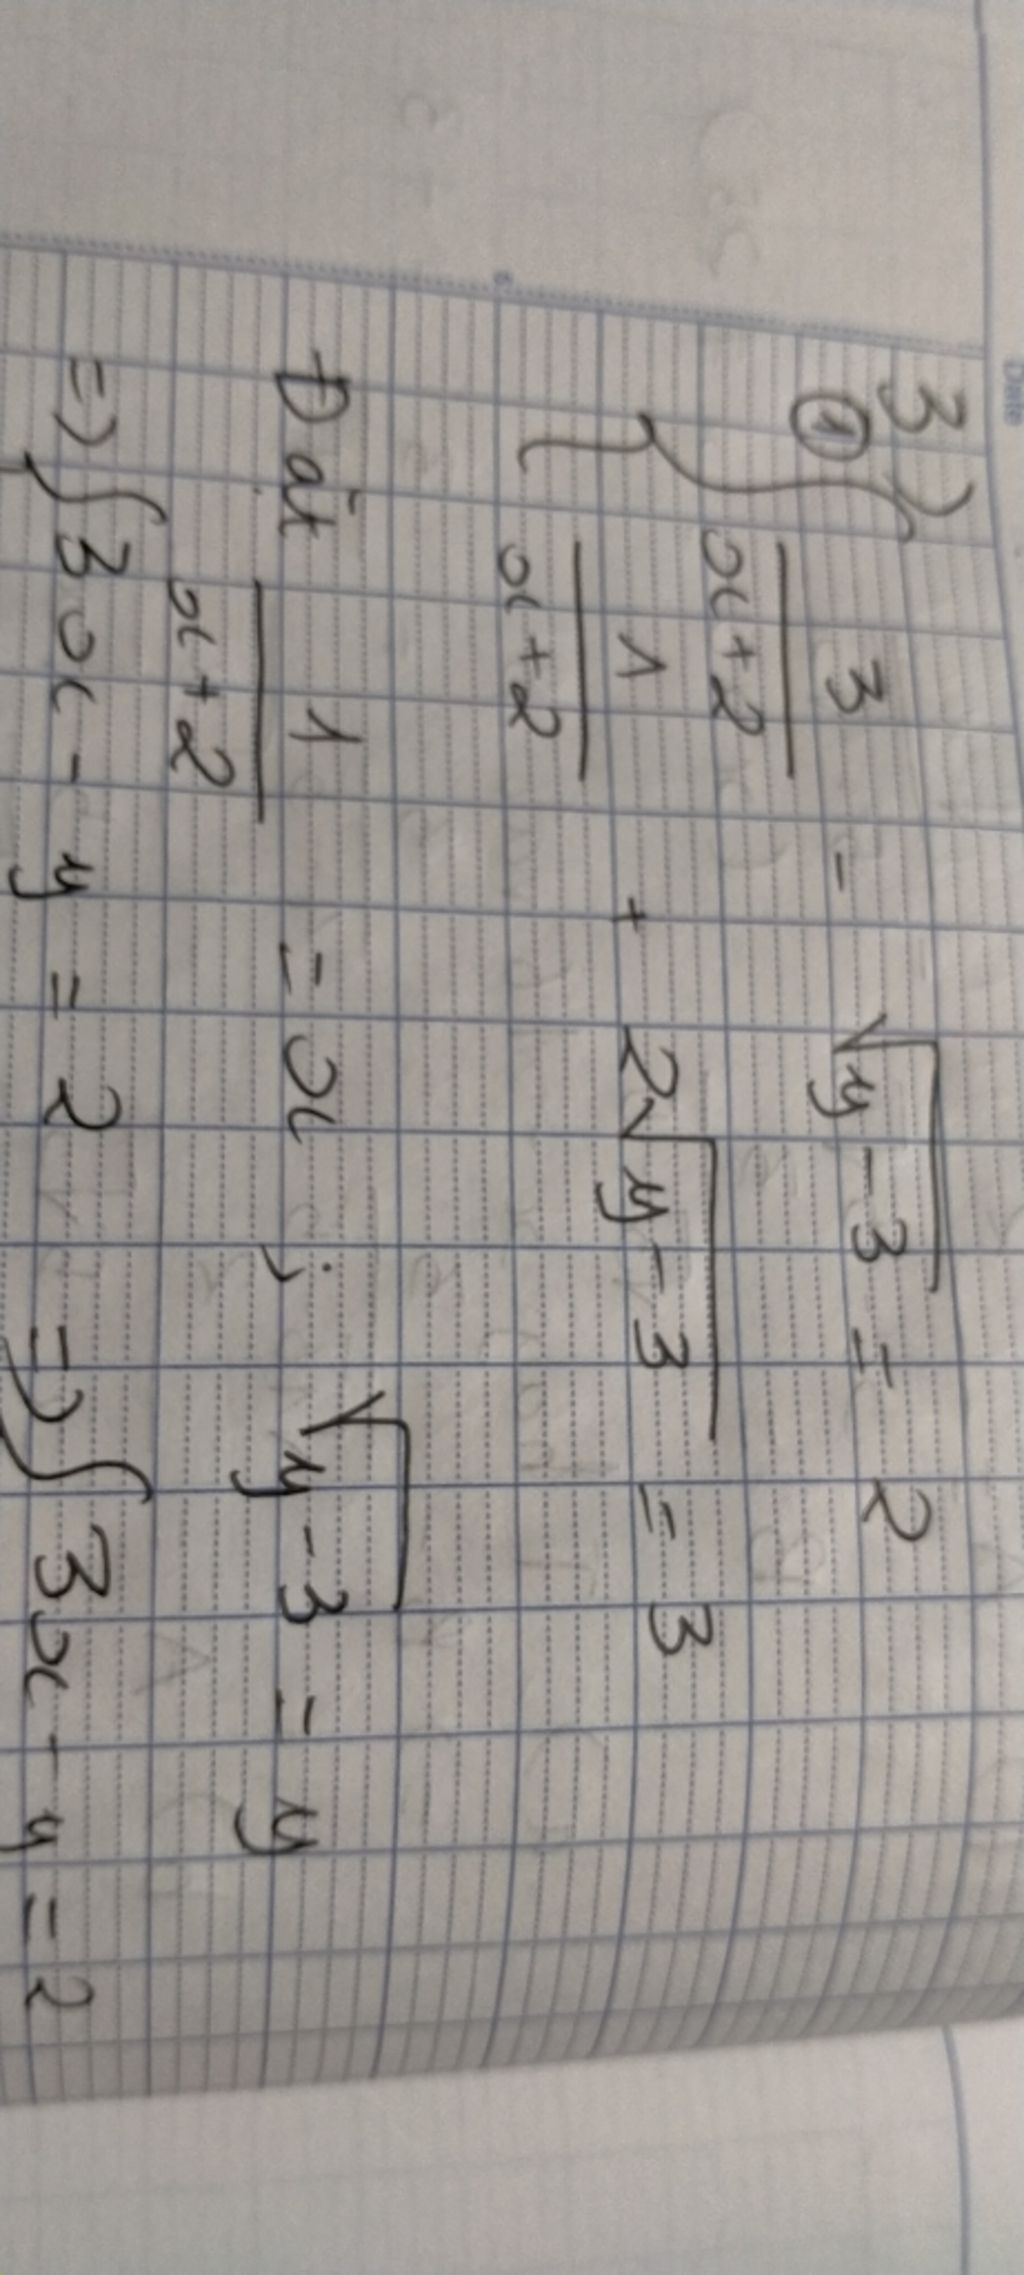 Date
3)
① { 3/(x+2) - √(y-3) = 2
1/(x+2) + 2√(y-3) = 3
Đặt 1/(x+2) = x ; √(y-3) = y
=> { 3x - y = 2 => { 3x - y = 2